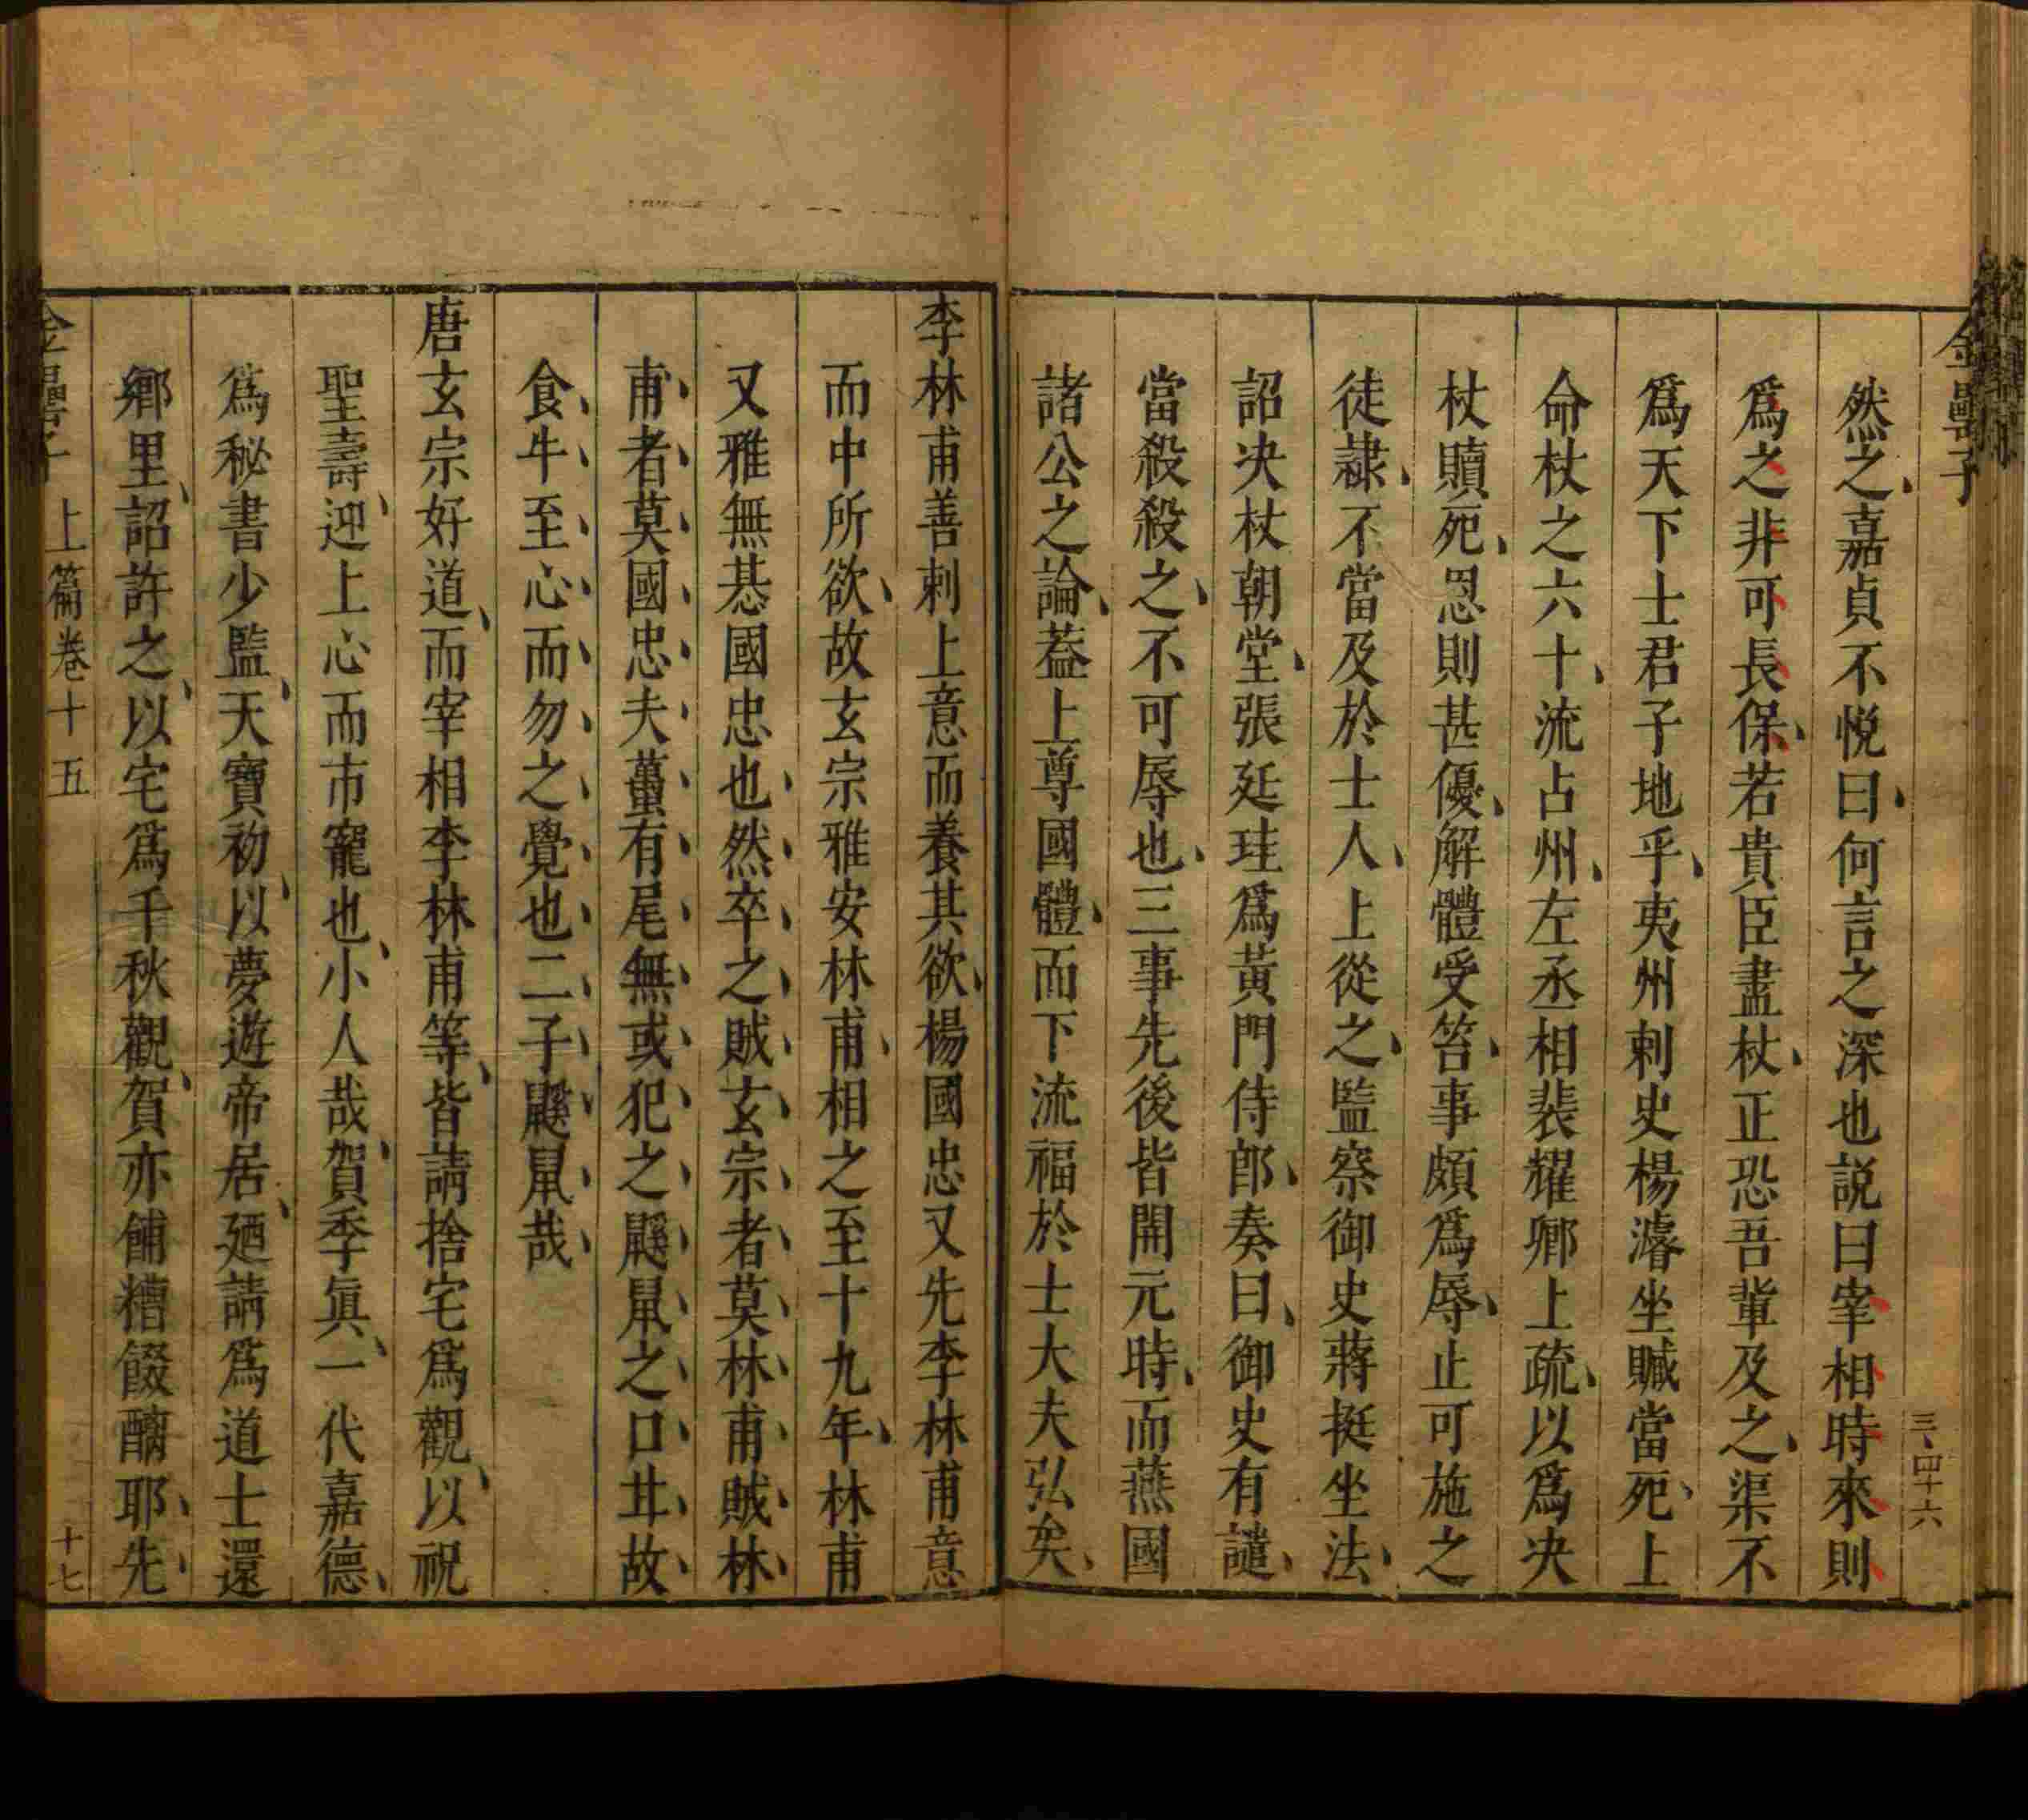 金罍子
三、四十六
然之嘉貞不悅曰何言之深也説曰宰相時來則
爲之非可長保若貴臣盡杖正恐吾輩及之渠不
爲天下士君子地乎夷州刺史楊濬坐贓當死上
命杖之六十流占州左丞相裴耀卿上疏以爲决
杖贖死恩則甚優解體受笞事頗爲辱止可施之
徒隷不當及於士人上從之監察御史蔣挺坐法
詔决杖朝堂張廷珪爲黃門侍郎奏曰御史有譴
當殺殺之不可辱也三事先後皆開元時而燕國
諸公之論葢上尊國體而下流福於士大夫弘矣
李林甫善刺上意而養其欲楊國忠又先李林甫意
而中所欲故玄宗雅安林甫相之至十九年林甫
又雅無惎國忠也然卒之賊玄宗者莫林甫賊林
甫者莫國忠夫蠆有尾無或犯之鼷鼠之口甘故
食牛至心而勿之覺也二子鼷鼠哉
唐玄宗好道而宰相李林甫等皆請捨宅爲觀以祝
聖壽迎上心而市寵也小人哉賀季眞一代嘉德
爲秘書少監天寶初以夢遊帝居廼請爲道士還
鄉里詔許之以宅爲千秋觀賀亦餔糟餟醨耶先
金罍子 上篇卷十五 十七